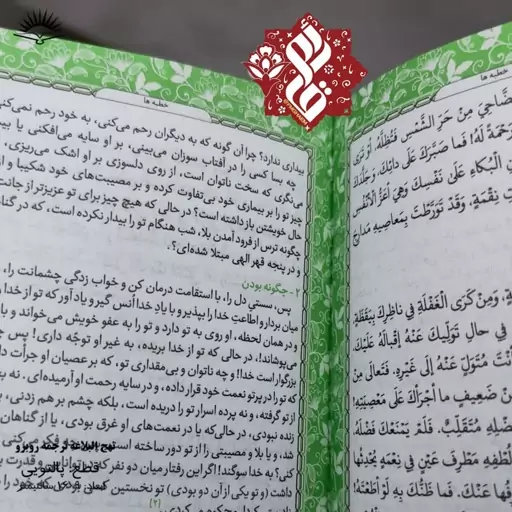 خطبه ها
بیداری ندارد؟ چرا آن گونه که به دیگران رحم می‌کنی، به خود رحم نمی‌کنی
چه بسا کسی را در آفتاب سوزان می‌بینی، بر او سایه می‌افکنی یا بیم
می‌نگری که سخت ناتوان است، از روی دلسوزی بر او اشک می‌ریزی،
چیز تو را بر بیماری خود بی‌تفاوت کرده و بر مصیبت‌های خود شکیبا و از
حال خویشتن باز داشته است؟ در حالی که هیچ چیز برای تو عزیزتر از جانت
چگونه ترس از فرود آمدن بلا، شب هنگام تو را بیدار نکرده است، که در گناه
و در پنجه قهر الهی مبتلا شده‌ای؟.
۲ - چگونه بودن
پس، سستی دل را، با استقامت درمان کن و خواب زدگی چشمانت را،
میان بردار و اطاعت خدا را بپذیر و با یاد خدا اُنس گیر و یاد آور که تو از خدا
و در همان لحظه، او روی به تو دارد و تو را به عفو خویش می‌خواند و با
می‌پوشاند!، در حالی که تو از خدا بریده، به غیر او توجّه داری! پس چه
بزرگوار است خدا! و چه ناتوان و بی‌مقداری تو، که بر عصیان او جرأت داری
که تو را در پرتو نعمت خود قرار داده، و در سایه رحمت او آرمیده‌ای، نه بخ
از تو گرفته، و نه پرده اسرار تو را دریده است. بلکه چشم بر هم زدنی، بی
زنده نبودی، در حالی که یا در نعمت‌های او غرق بودی، یا از گناهان
شد، و یا بلا و مصیبتی را از تو دور ساخته است
کنی؟ به خدا سوگند! اگر این رفتار میان دو نفر که در توانایی و قدرت
داشت (و تو یکی از آن دو بودی) تو نخستین کسی بودی که خود را
[۲]
خطبه ها
ضَّاحِیَ مِنْ حَرِّ الشَّمْسِ فَتُظِلُّهُ، أَوْ تَرَی
رَحْمَةً لَهُ! فَما صَبَّرَکَ عَلَی دائِکَ، وَ جَلَّدَکَ
نِ الْبُکاءِ عَلَی نَفْسِکَ وَ هِیَ أَعَزُّ الْأَنْفُسِ
تِ نِقْمَةٍ، وَ قَدْ تَوَرَّطْتَ بِمَعاصِیهِ مَدارِجَ
ةٍ، وَ مِنْ کَرَی الْغَفْلَةِ فِی ناظِرِکَ بِیَقَظَةٍ،
فِی حالِ تَوَلِّیکَ عَنْهُ إِقْبالَهُ عَلَیْکَ
أَنْتَ مُتَوَلٍّ عَنْهُ إِلَی غَیْرِهِ. فَتَعالَی مِنْ
مِنْ ضَعِیفٍ ما أَجْرَأَکَ عَلَی مَعْصِیَتِهِ
ضْلِهِ مُتَقَلِّبٌ. فَلَمْ یَمْنَعْکَ فَضْلَهُ
لُطْفِهِ مَطْرِفَ عَیْنٍ فِی نِعْمَةٍ یُحْدِثُها
ها عَنْکَ. فَما ظَنُّکَ بِهِ لَوْ أَطَعْتَهُ!
نهج البلاغه ترجمه روبرو